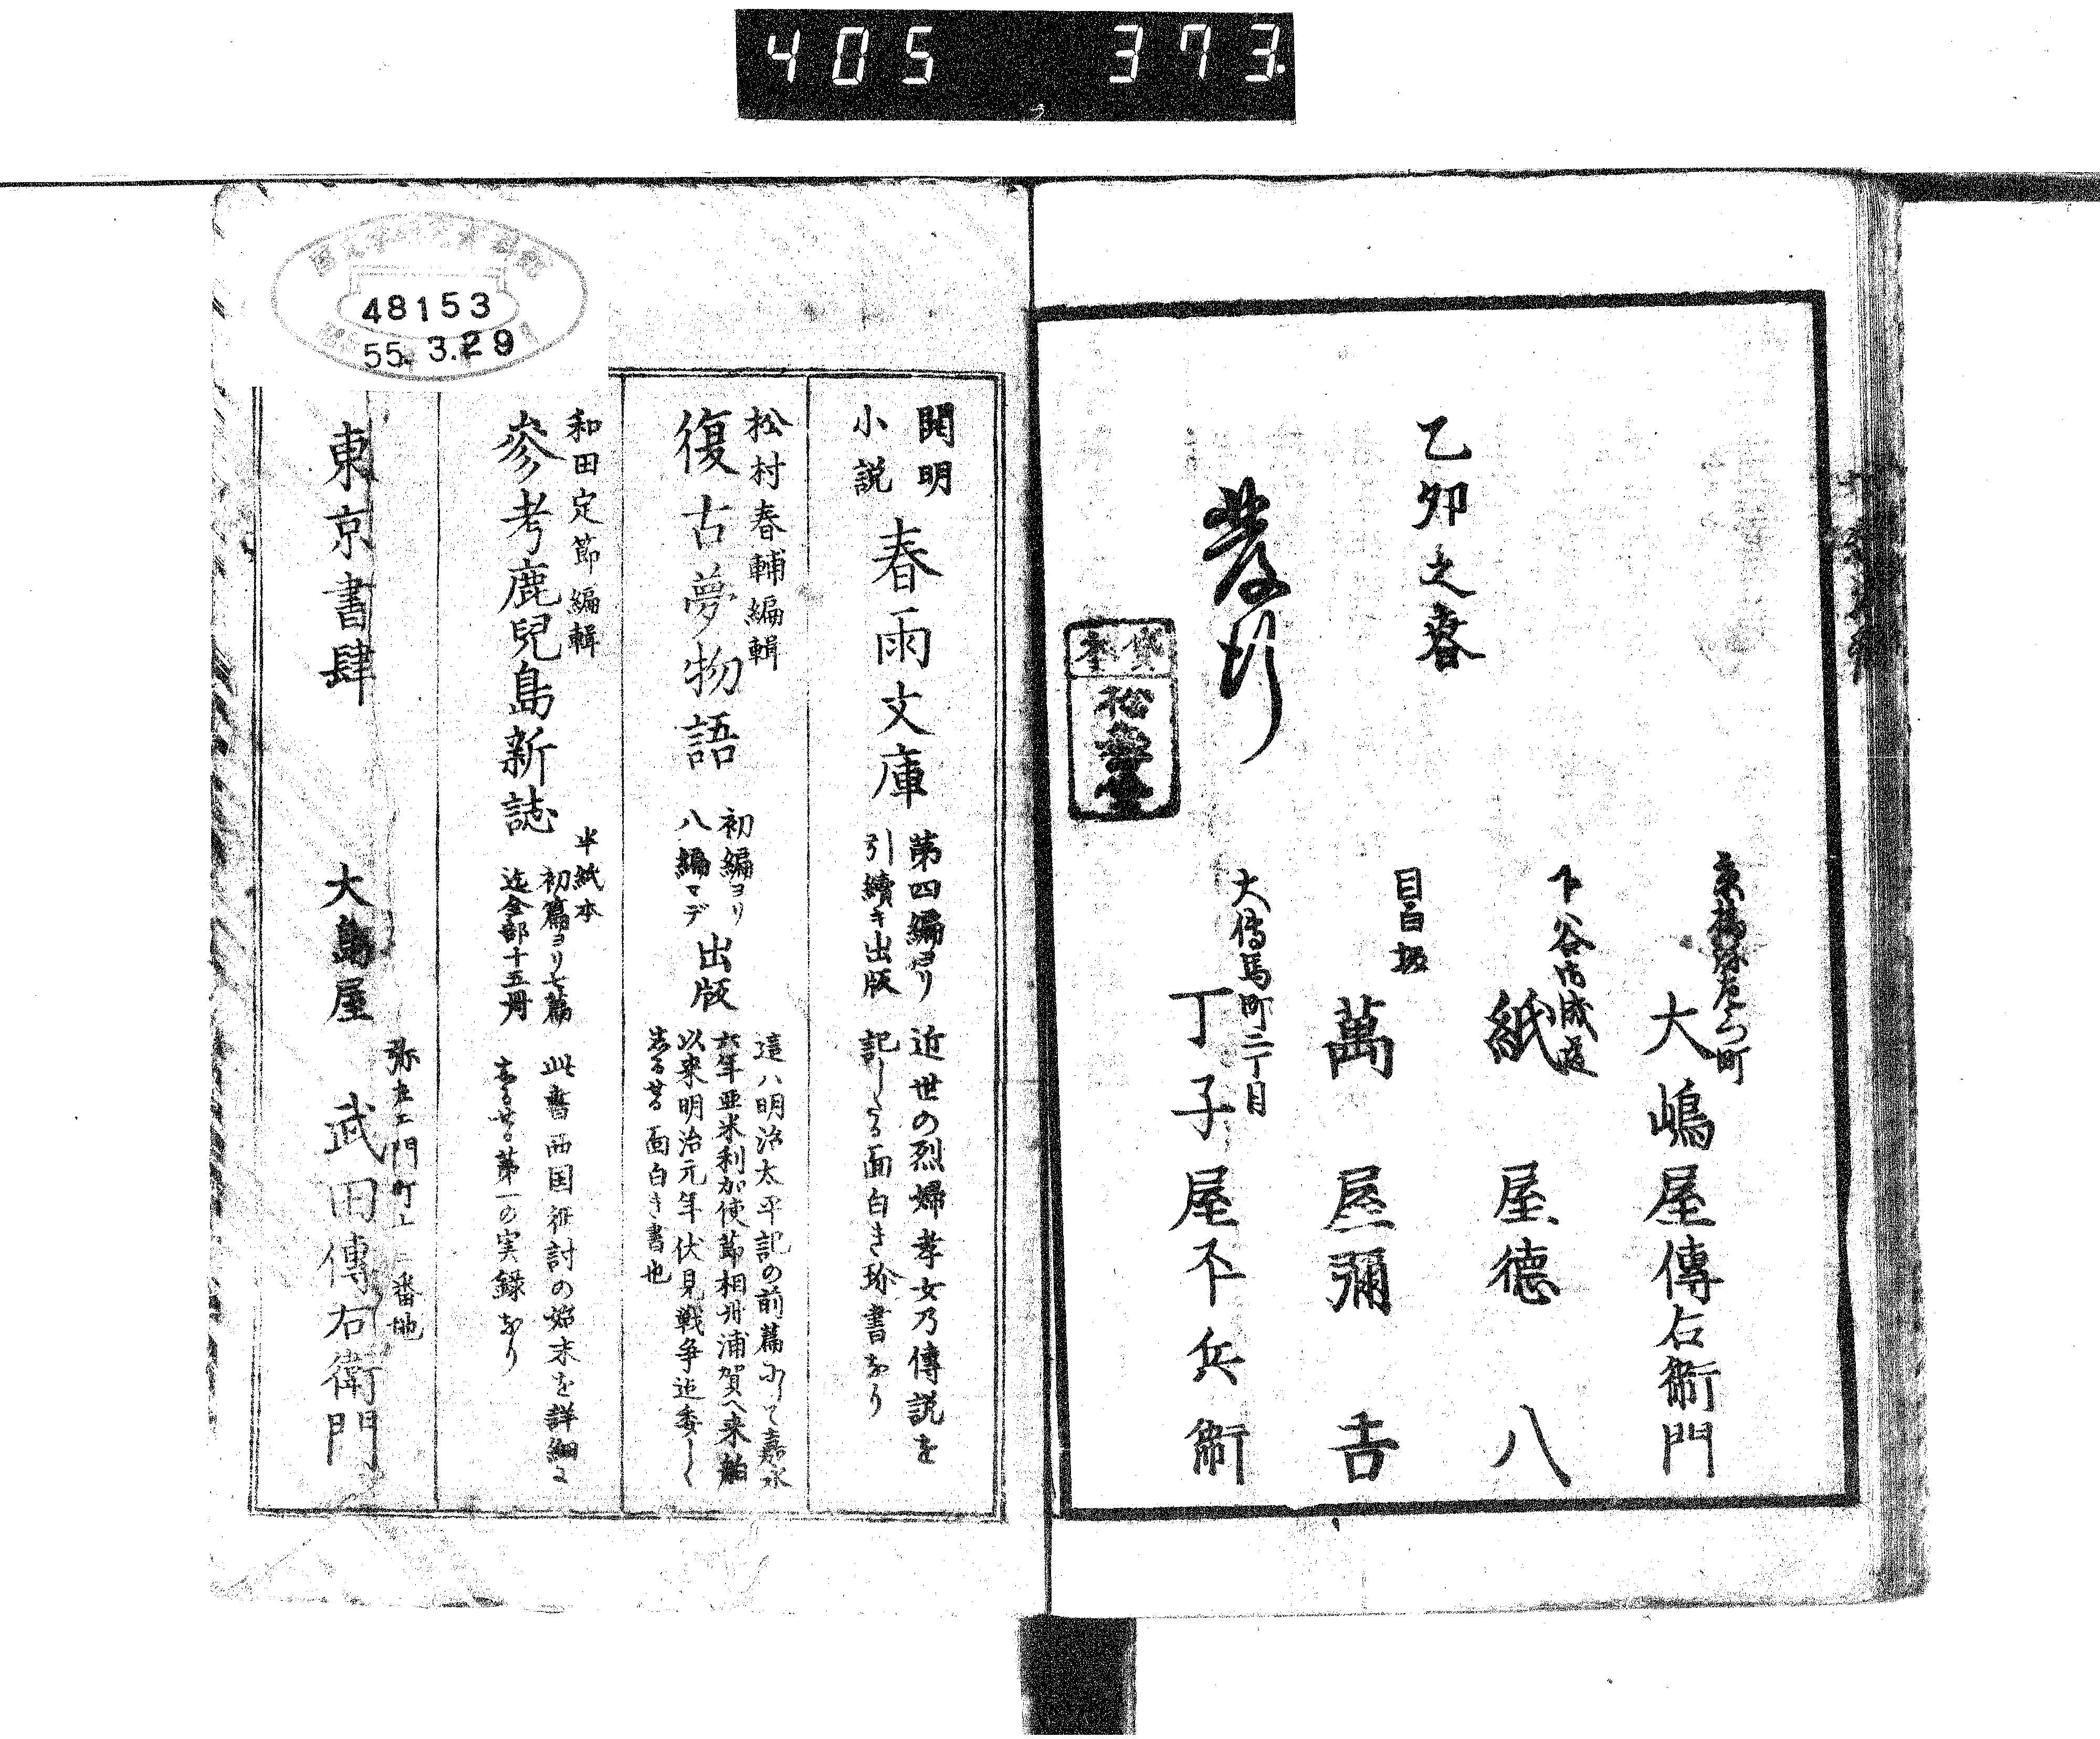 405 373.
乙卯之春
發行
京橋弥左エ門町
大嶋屋傳右衛門
下谷御成道
紙屋徳八
目白坂
萬屋彌吉
大傳馬町二丁目
丁子屋平兵衛
貸本
松
堂
開明
小説
春雨文庫
第四編ヨリ
引續キ出版
近世の烈婦孝女乃傳説を
記したる面白き珍書なり
松村春輔編輯
復古夢物語
初編ヨリ
八編マデ
出版
這ハ明治太平記の前篇にして嘉永
六年亜米利加使節相州浦賀へ来舶
以来明治元年伏見戦争迄委しく
志るせる面白き書也
和田定節編輯
參考鹿兒島新誌
半紙本
初篇ヨリ七篇
迄全部十五冊
此書西国征討の始末を詳細に
志るせる第一の実録なり
東京書肆
弥左エ門町
番地
大島屋
武田傳右衛門
48153
55.3.29